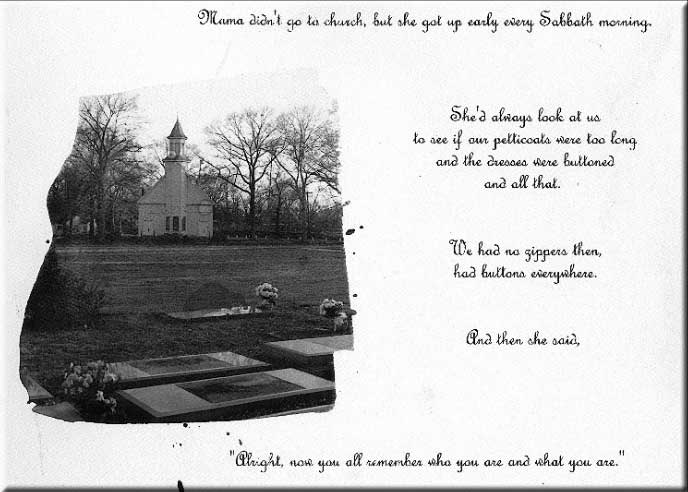 Mama didn't go to church, but she got up early every Sabbath morning.
She'd always look at us
to see if our petticoats were too long
and the dresses were buttoned
and all that.
We had no zippers then,
had buttons everywhere.
And then she said,
"Alright, now you all remember who you are and what you are."